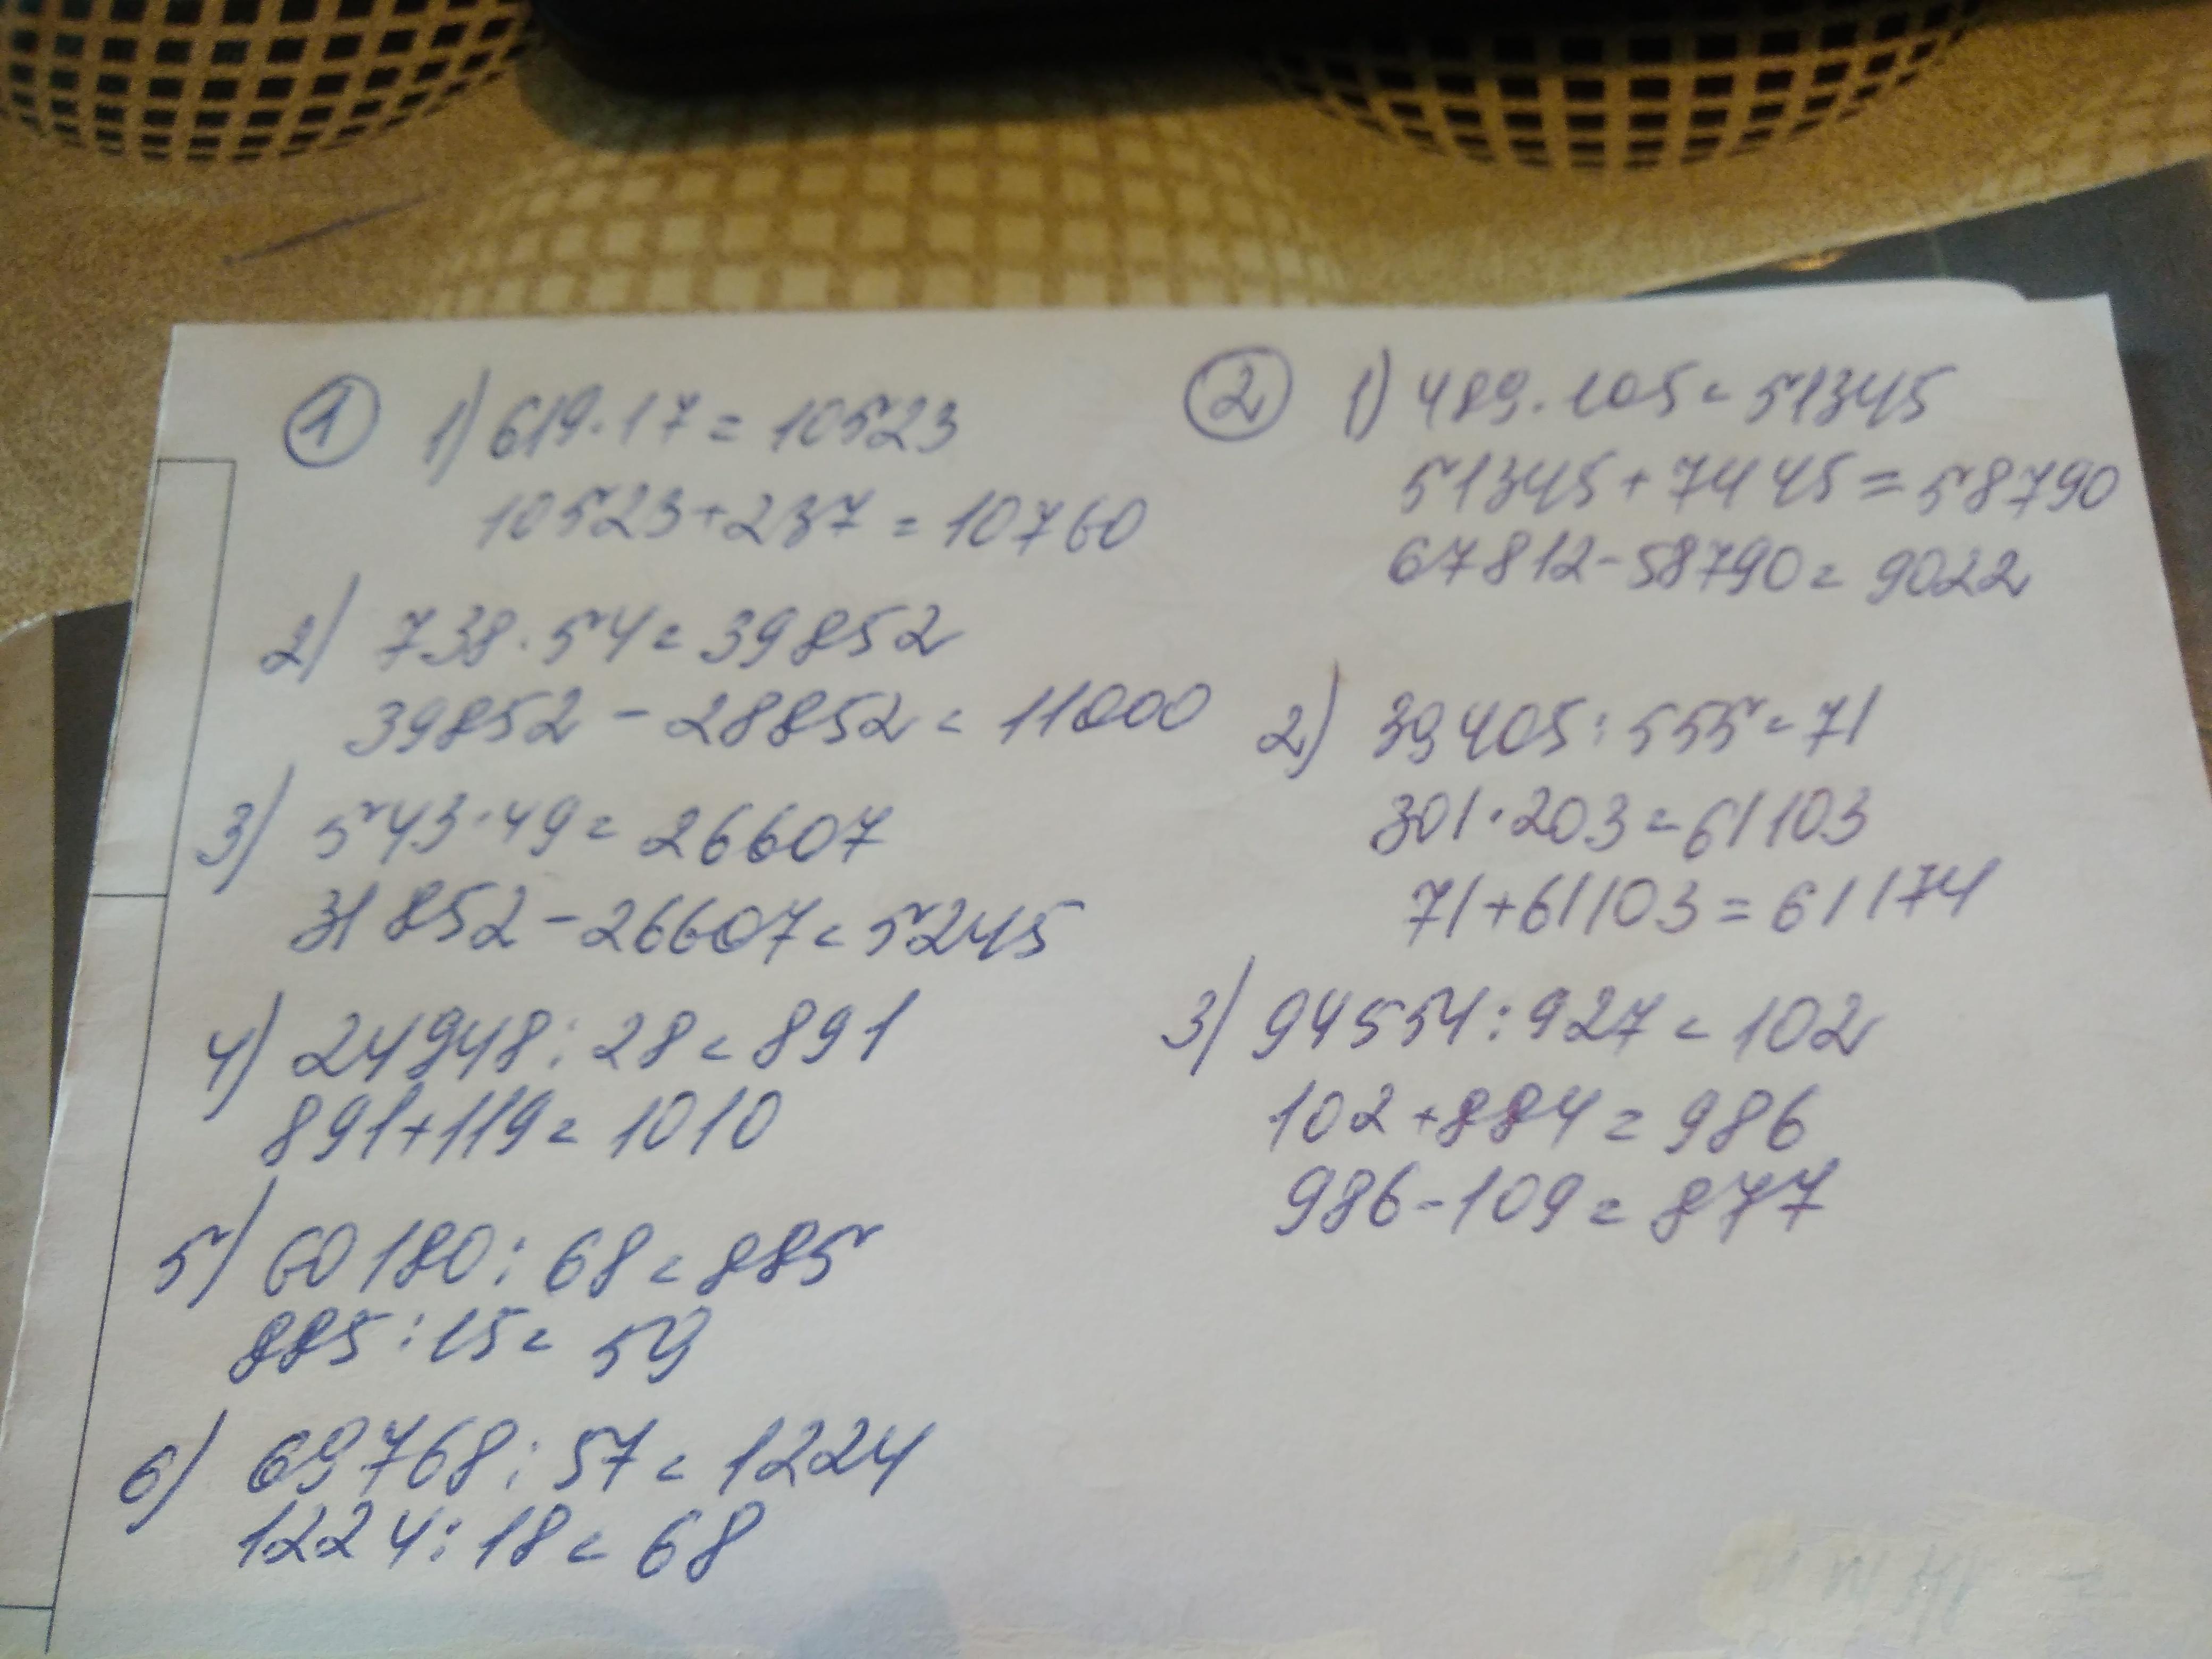 1
1) 619·17=10523
10523+237=10760
2) 738·54=39852
39852-28852=11000
3) 543·49=26607
31852-26607=5245
4) 24948:28=891
891+119=1010
5) 60180:68=885
885:15=59
6) 69768:57=1224
1224:18=68
2
1) 489·105=51345
51345+7445=58790
67812-58790=9022
2) 39405:555=71
301·203=61103
71+61103=61174
3) 94554:927=102
102+884=986
986-109=877